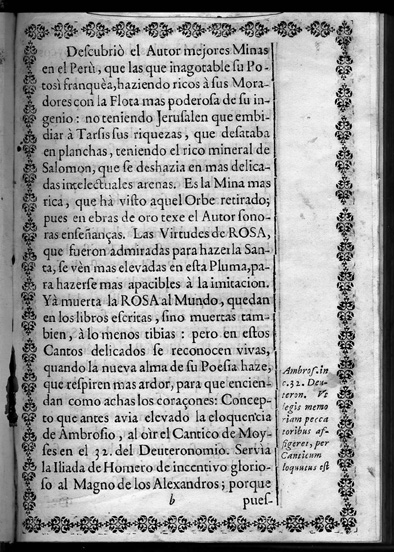 Descubriò el Autor mejores Minas
en el Perù, que las que inagotable su Po-
tosi franquèa, haziendo ricos à sus Mora-
dores con la Flota mas poderosa de su in-
genio: no teniendo Jerusalen que embi-
diar à Tarsis sus riquezas, que desataba
en planchas, teniendo el rico mineral de
Salomon, que se deshazia en mas delica-
das intelectuales arenas. Es la Mina mas
rica, que hà visto aquel Orbe retirado;
pues en ebras de oro texe el Autor sono-
ras enseñanças. Las Virtudes de ROSA,
que fueron admiradas para hazerla San-
ta, se vèn mas elevadas en esta Pluma, pa-
ra hazerse mas apacibles à la imitacion.
Yà muerta la ROSA al Mundo, quedan
en los libros escritas, sino muertas tam-
bien, à lo menos tibias: pero en estos
Cantos delicados se reconocen vivas,
quando la nueva alma de su Poesia haze,
que respiren mas ardor, para que encien-
dan como achas los coraçones: Concep-
to que antes avia elevado la eloquencia
de Ambrosio, al oìr el Cantico de Moy-
ses en el 32. del Deuteronomio. Servia
la Iliada de Homero de incentivo glorio-
so al Magno de los Alexandros; porque
b
pues-
Ambros. in
c. 32. Deu-
teron. Vt
legis memo
riam pecca
toribus af-
figeret, per
Canticum
loquutus est